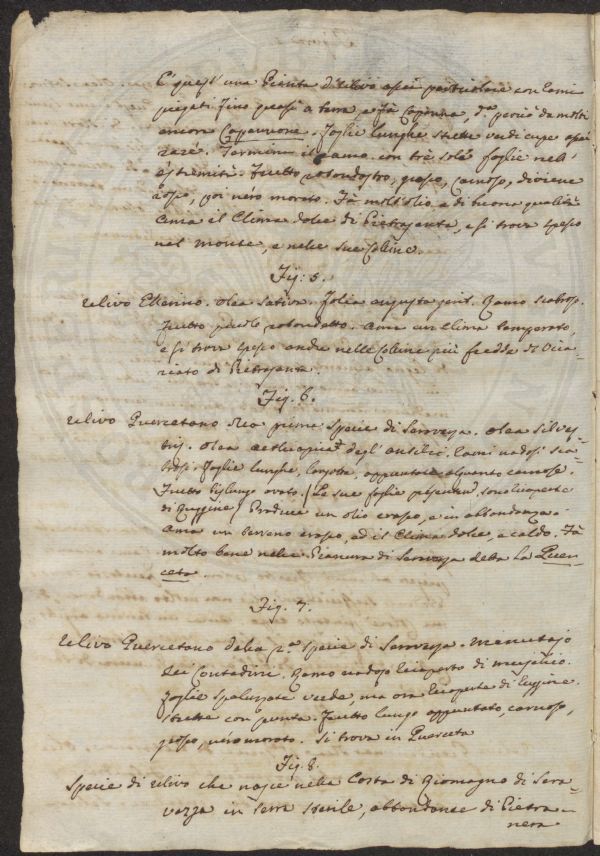 E' quest' una Pianta d'Ulivo assai particolare con rami
piegati sino quasi a terra, e fà Capanna, d.º perciò da molti
ancora Capannone. Foglie lunghe strette verdi cupe assai
rare. Termina il ramo con trè sole foglie nell'
estremità. Frutto rotondastro, grosso, carnoso, diviene
rosso, poi nero morato. Fà molt'olio, e di buona qualità.
Ama il Clima dolce di Pietrasanta, e si trova spesso
nel monte, e nelle sue Coline.
Fig: 5.
Ulivo . Olea sativa. Folia angusta . Ramo scabroso.
Frutto piccolo rotondetto. Ama un Clima temperato,
e si trova spesso anche nelle Coline più fredde di Vica-
riato di Pietrasanta.
Fig. 6.
Ulivo Quercetano della prima Specie di Seravezza. Olea Silves-
tris. Olea degl' . Rami nodosi sca-
brosi. Foglie lunghe, , appuntate alquanto carnose.
Frutto bislungo ovato. (Le sue foglie sono ricoperte
di Ruggine) Produce un olio crasso, e in abbondanza.
Ama un terreno crasso, ed il Clima dolce, e caldo. Fà
molto bene nella Pianura di Seravezza detta La Quer-
ceta.
Fig. 7.
Ulivo Quercetano della 2.ª Specie di Seravezza.
dei Contadini. Ramo nodoso ricoperto di .
Foglie verde, ma ora ricoperte di Ruggine.
strette con punta. Frutto lungo appuntato, carnoso,
grosso, nero morato. Si trova in Querceta
Fig. 8.
Specie di Ulivo che nasce nella Costa di Riomagno di Sera
vezza in terra sterile, abbondante di Pietra
nera